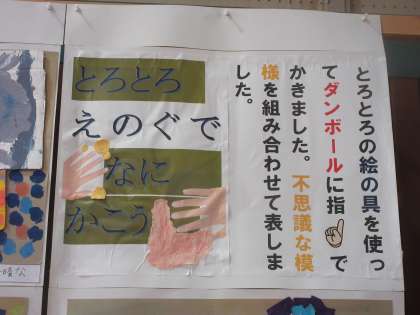 とろとろ
えのぐで
なに
かこう
とろとろの絵の具を使っ
てダンボールに指☝で
かきました。不思議な模
様を組み合わせて表しま
した。